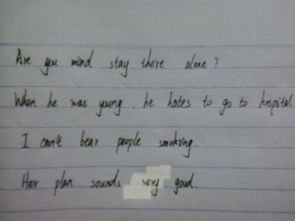 Are you mind stay there alone?
When he was young, he hates to go to hospital.
I can't bear people smoking.
Her plan sounds very good.